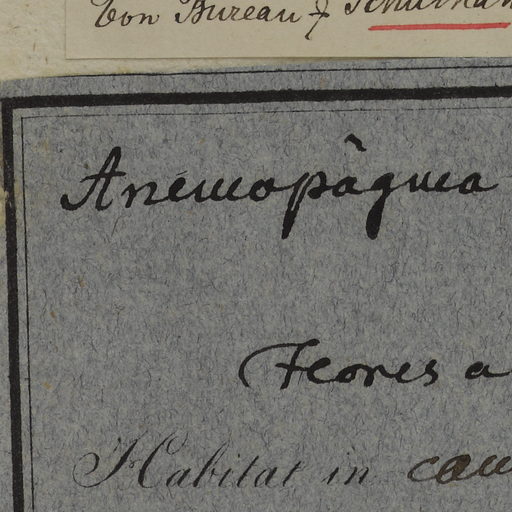 von Bureau f. Schuman
Anémopâgma
Flores a
Habitat in cam